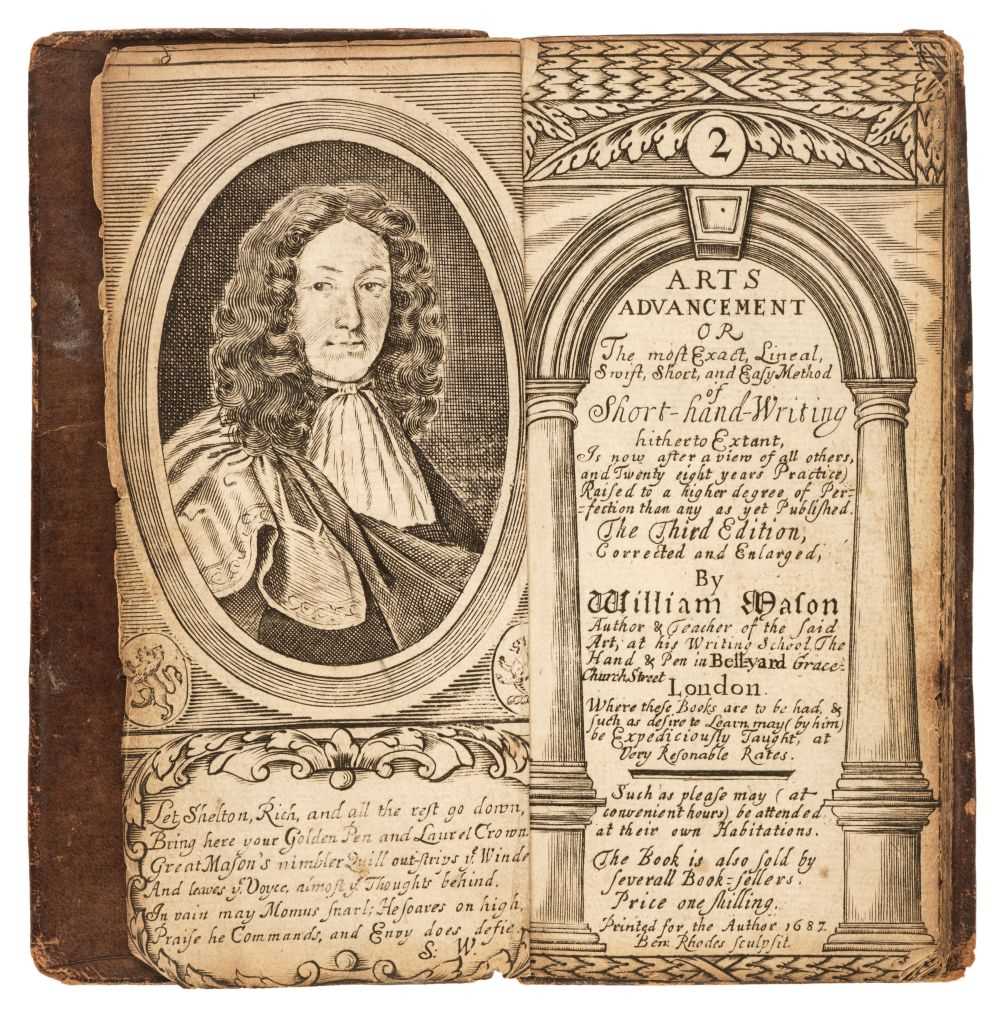 Let Shelton, Rich, and all the reſt go down,
Bring here your Golden Pen and Laurel Crown
Great Maſon's nimbler Quill out-ſtrips yͤ Winde
And leaves yͤ Voyce, almoſt yͤ Thoughts behind.
In vain may Momus ſnarl; He ſoares on high,
Praiſe he Commands, and Envy does defie
S: W.
2
ARTS
ADVANCEMENT
OR
The moſt Exact, Lineal,
Swift, Short, and Eaſy Method
of
Short-hand-Writing
hitherto Extant,
Is now after a view of all others,
and Twenty eight years Practice)
Raiſed to a higher degree of Per-
-fection than any as yet Publiſhed.
The Third Edition,
Corrected and Enlarged,
By
William Maſon
Author & Teacher of the ſaid
Art, at his Writing School, The
Hand & Pen in Bell-yard Grace-
Church Street
London.
Where theſe Books are to be had, &
ſuch as deſire to Learn may (by him)
be Expediciouſly Taught, at
Very Reſonable Rates.
Such as pleaſe may (at
convenient hours) be attended
at their own Habitations.
The Book is alſo ſold by
ſeverall Book-ſellers.
Price one ſhilling.
Printed for the Author 1687.
Ben: Rhodes ſculpſit.